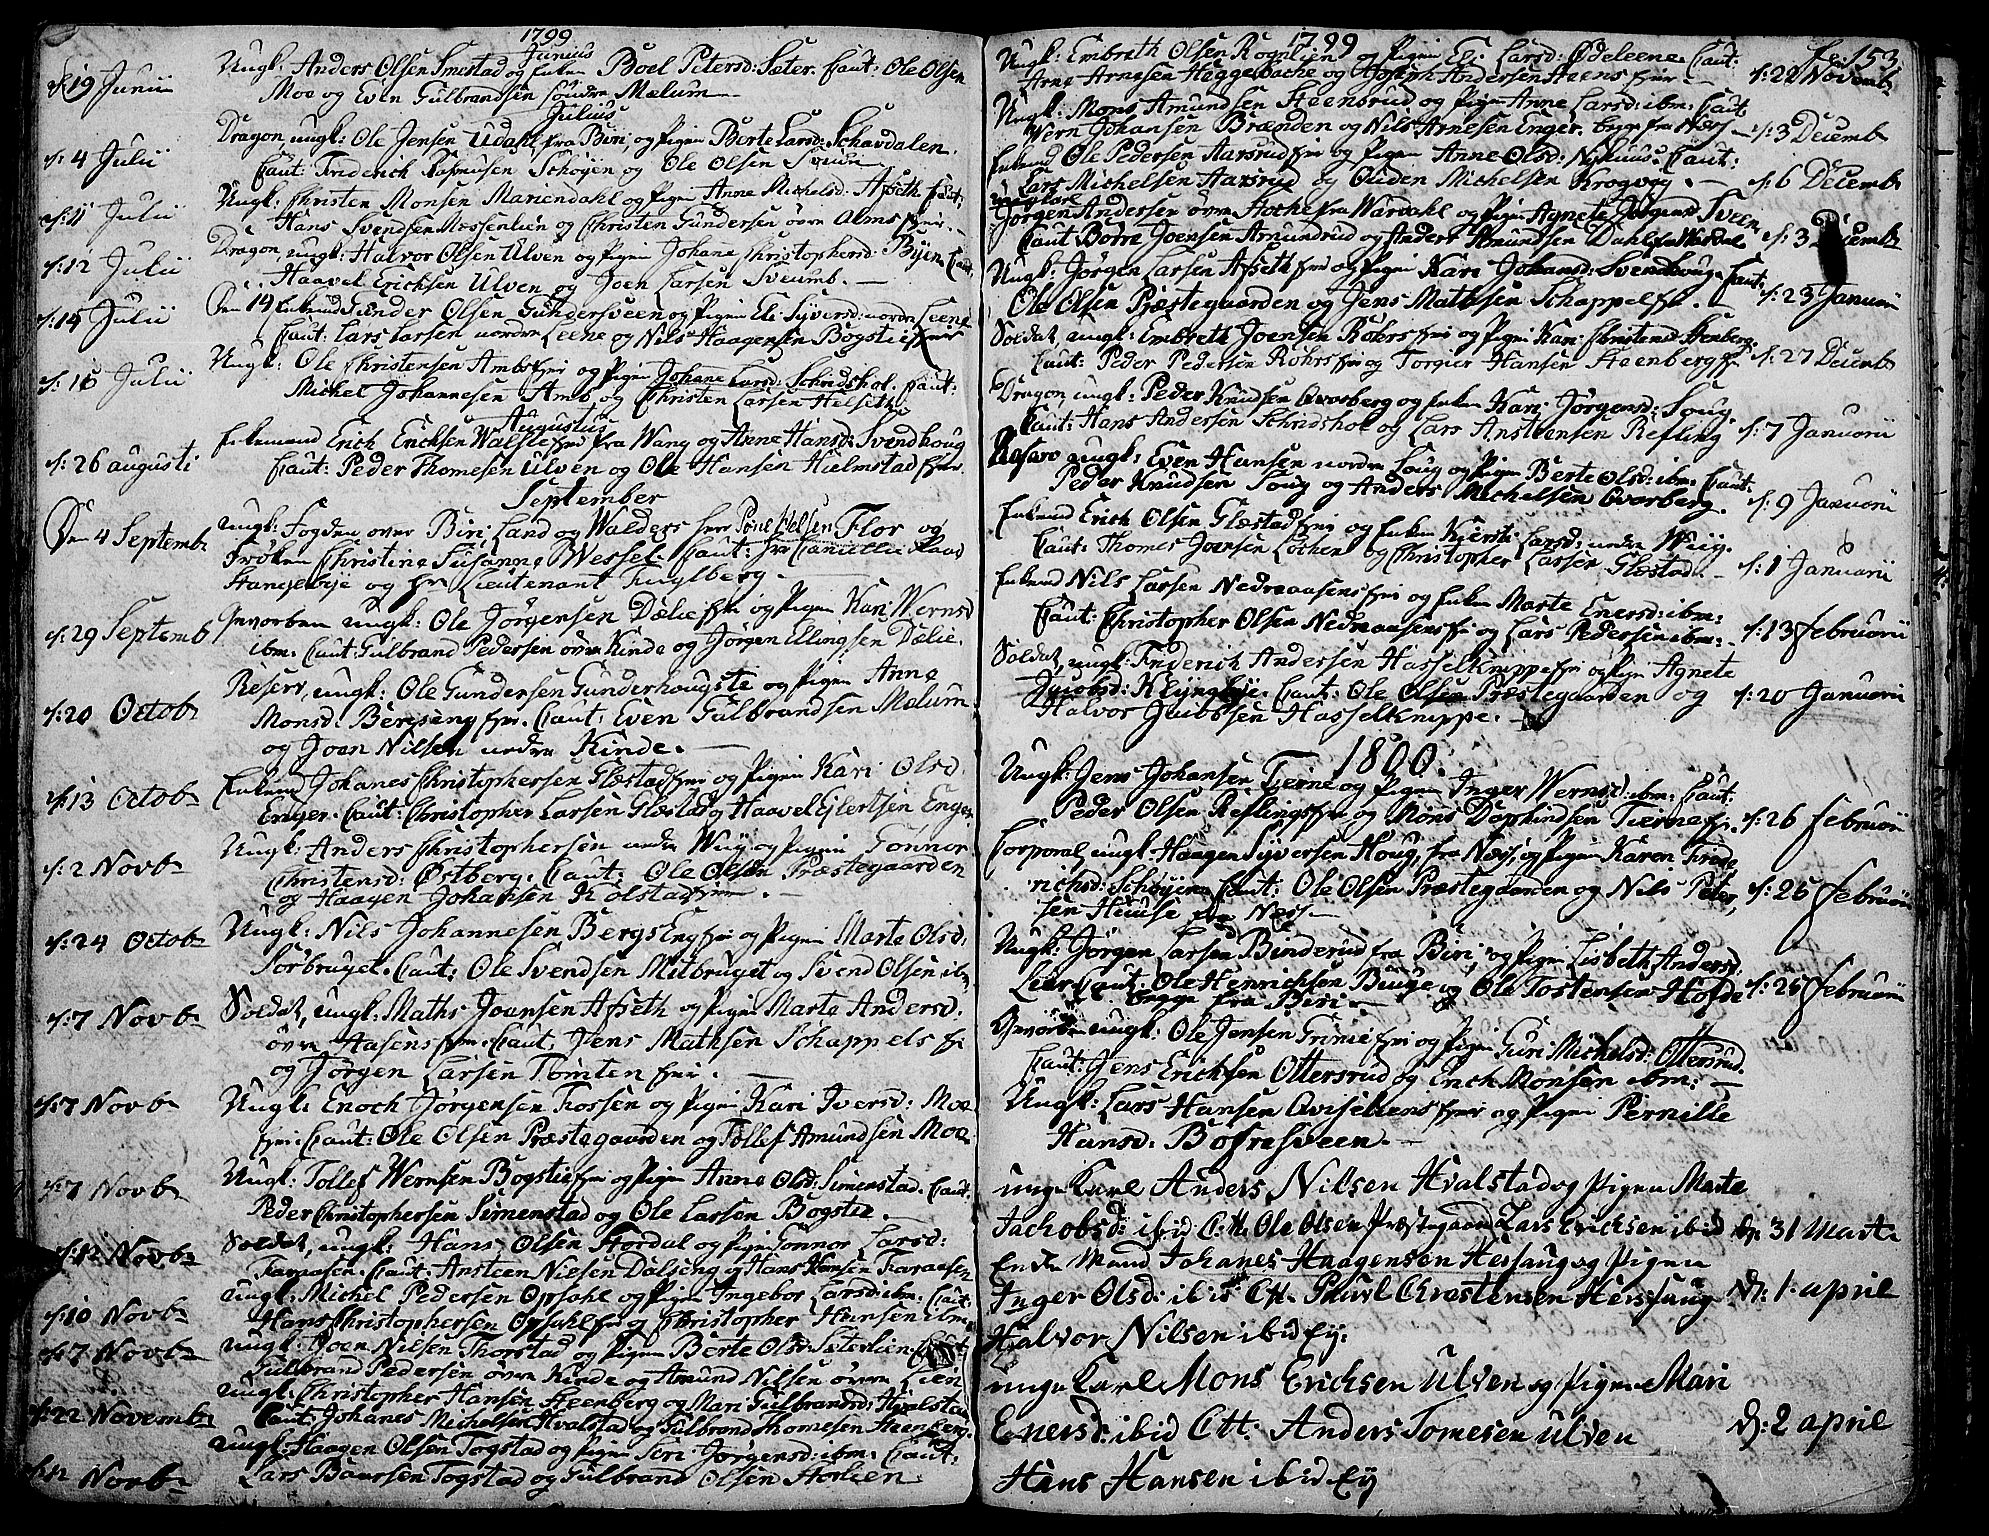 1799
Junius
d: 19 Junii
Ungk: Anders Olsen Smestad og Enken Boel Petersd: Sæter. Caut: Ole Olsen
Moe og Even Gulbrandsen søndre Mælum
Julius
d: 4 Julii
Dragon, ungk: Ole Jensen Udahl fra Biri, og Pigen Berte Larsd: Schavdalen.
Caut: Friderich Rasmusen Schøyen og Ole Olsen Sveum
d: 11 Julii
Ungk: Christen Monsen Mariendahl og Pigen Anne Michelsd: Afseth
Hans Svendsen og Christen Gundersen øvre Alms
d: 12 Julii
Dragon ungk: Halvor Olsen Ulven og Pigen Johane Christophersd: Byen Caut:
Haavel Erichsen Ulven og Joen Larsen Sveumb.
d: 14 Julii
Den 14 Enkemd Sænder Olsen Gundersveen og Pigen Eli Syversd: nordre Leene
Caut: Lars Larsen nordre Leene og Nils Haagensen Bogstie
d: 15 Julii
Ungk: Ole Christensen Ambs og Pigen Johane Larsd: Schridshol. Caut:
Michel Johannesen Amb og Christen Larsen Helseth
Augustus
d: 26 augusti
Enkemand Erich Erichsen Walsle fra Wang og Anne Hansd: Svendhoug
Caut: Peder Thomesen Ulven og Ole Hansen Hielmstad
September
Den 4 Septemb
ungk: Fogden over Biri, Land og Walders herr Nielsen Flor og
Frøken Christine Susanne Wessel. Caut: hr Cancellie Raad
og hr Lieutenant
d: 29 Septemb
Gevorben ungk: Ole Jørgensen Dælie og Pigen Kari Wernsd
ibm. Caut: Gulbrand Pedersen øvre Kinde og Jørgen Ellingsen Dælie.
d: 20 Octob
Reserv, ungk: Ole Gundersen Gunderhougstie og Pigen Anne
Monsd. Bergseng Caut: Even Gulbrandsen Mælum
og Joen Nilsen nedre Kinde.
d: 13 Octob
Enkemd Johanes Christophersen Glæstad og Pigen Kari Olsd
Enger. Caut: Christopher Larsen Glæstad og Haavel Enger.
d: 2 Novb
Ungk: Anders Christophersen nedre Wiig og Pigen Tønnor
Christensd: Østberg. Caut: Ole Olsen Præstegaarden
og Haagen Johansen Kolstad
d: 24 Octob
Ungk: Nils Johannesen BergsEng og Pigen Marte Olsd:
Sorbruget. Caut: Ole Svendsen Mælbruget og Svend Olsen ibm
d: 7 Novb
Soldat, ungk: Maths Joensen Afseth og Pigen Marte Andersd:
øvre Aasens Caut: Jens Mathsen Schappels
og Jørgen Larsen Tomten
d: 7 Novb
Ungk: Enoch Jørgensen Fossen og Pigen Kari Iversd: Moe
Caut: Ole Olsen Præstegaarden og Tollef Amundsen Moe
d: 7 Novb
Ungk: Tollef Wernsen Bogstie og Pigen Anne Olsd: Simenstad. Caut:
Peder Christophersen Simenstad og Ole Larsen Bogstie.
d: 12 Novb
Soldat, ungk: Hans Olsen Hordal og Pigen Gonnor Larsd:
Faraasen. Caut: Ansteen Nielsen Dalseng og Hans Hansen Faraasen
d: 10 Novb
ungk: Michel Pedersen Opsahl og Pigen Ingebor Larsd: ibm: Caut:
Hans Christophersen Opsahl og Christopher Hansen ibm
d: 7 Novb
ungk: Joen Nilsen Thorstad og Pigen Berte Olsd: Seterlien Caut:
Gulbrand Pedersen øvre Kinde og Amund Nilsen øvre Lien
d: 22 Novemb
ungk: Christopher Hansen Steenberg og Mari Gulbrandsd: Hvalstad
Caut: Johanes Michelsen Hvalstad og Gulbrand Thomesen Steenberg.
d: 12 Novb
ungk: Haagen Olsen Togstad og Pigen Siri Jørgensd: ibm: Caut:
Lars Baarsen Togstad og Gulbrand Olsen Horlien.
1799
153
Ungk: Embreth Olsen Rognlien og Pigen Eli Larsd: Ødeleene. Caut:
Arne Arnesen Heggebache og Joseph Andersen Steens
d: 22 Novemb
Ungk: Mons Amundsen Steensrud og Pigen Anne Larsd: ibm: Caut
Wern Johansen Brænden og Nils Arnesen Enger. begge fra Næs
d: 3 Decemb
Enkemd Ole Pedersen Aarsrud og Pigen Anne Olsd: Nyhuus: Caut:
Lars Michelsen Aarsrud og Ouden Michelsen Krogvig.
d: 6 Decemb
ungkarl
Jørgen Andersen øvre Hoche fra Wardahl og Pigen Agnete Jørgensd Sveen
Caut Børre Joensen Amundrud og Anders Amundsen Dahl fra Wardal
d: 3 Decemb
Ungk: Jørgen Larsen Afseth og Pigen Kari Johansd: Svendhoug. Caut:
Ole Olsen Præstegaarden og Jens Mathisen Schappel
d: 23 Januarii
Soldat, ungk: Embreth Joensen Rohrs og Pigen Kari Christensd Stenberg.
Caut: Peder Pedersen Rohrs og Torgier Hansen Steenberg
d: 27 Decemb
Dragon ungk: Peder Knudsen Qværberg og Enken Kari Jørgensd: Soug
Caut: Hans Andersen Schridshol og Lars Ansteensen Refling
d: 7 Januarii
ungk: Even Hansen nordre Soug og Pigen Berte Olsd: ibm: Caut:
Peder Knudsen Soug og Anders Michelsen Qværberg.
d: 9 Januarii
Enkemd Erich Olsen Glæstad og Enken Kiersti Larsd: nedre Wiig.
Caut: Thomes Joensen Lothen og Christopher Larsen Glæstad.
d: 1 Januarii
Enkemd Nils Larsen Nedreaasens og Enken Marte Enersd: ibm:
Caut: Christopher Olsen Nedreaasens og Lars Pedersen ibm:
d: 13 februarii
Soldat, ungk: Friderich Andersen Hasselknippe og Pigen Agnete
Jacobsd: Klyngbye. Caut: Ole Olsen Præstegaarden og
Halvor Jacobsen Hasselknippe.
d: 20 Januarii
1800.
Ungk: Jens Johansen Tierne og Pigen Inger Wernsd: ibm: Caut:
Peder Olsen Reflings og Mons Tierne
d: 26 februarii
Corporal, ungk: Haagen Syversen Houg, fra Næs, og Pigen Karen Fride
richsd: Schøyen Caut: Ole Olsen Præstegaarden og Nils Peter
sen Huuse fra Næs
d: 25 februarii
Ungk: Jørgen Larsen Binderud fra Biri, og Pigen Lisbeth Andersd:
Lier Caut: Ole Henrichsen Biuge og Ole Tostensen Hofde
begge fra Biri.
d: 25 februarii
Gevorben ungk: Ole Jensen Grime og Pigen Guri Michelsd: Ottersrud.
Caut: Jens Erichsen Ottersrud og Erich Monsen ibm:
Ungk: Lars Hansen og Pigen Pernille
Hansd: Bofrasveen.
unge Karl Anders Nilsen Hvalstad og Pigen Marte
Jachobsd: ibid C:tt. Ole Olsen Præstegaard Lars Ericksen ibid
d: 31 Marti
Enke Mand Johanes Haagensen Hersaug og Pigen
Inger Olsd: ibid Ctt. Pauel Chrestensen Herssaug
Halvor Nilsen ibid Ey.
d: 1. april
unge Karl Mons Ericksen Ulven og Pigen Mari
Enersd: ibid Ctt: Anders Tomesen Ulven
Hans Hansen ibid Ey
d: 2 april